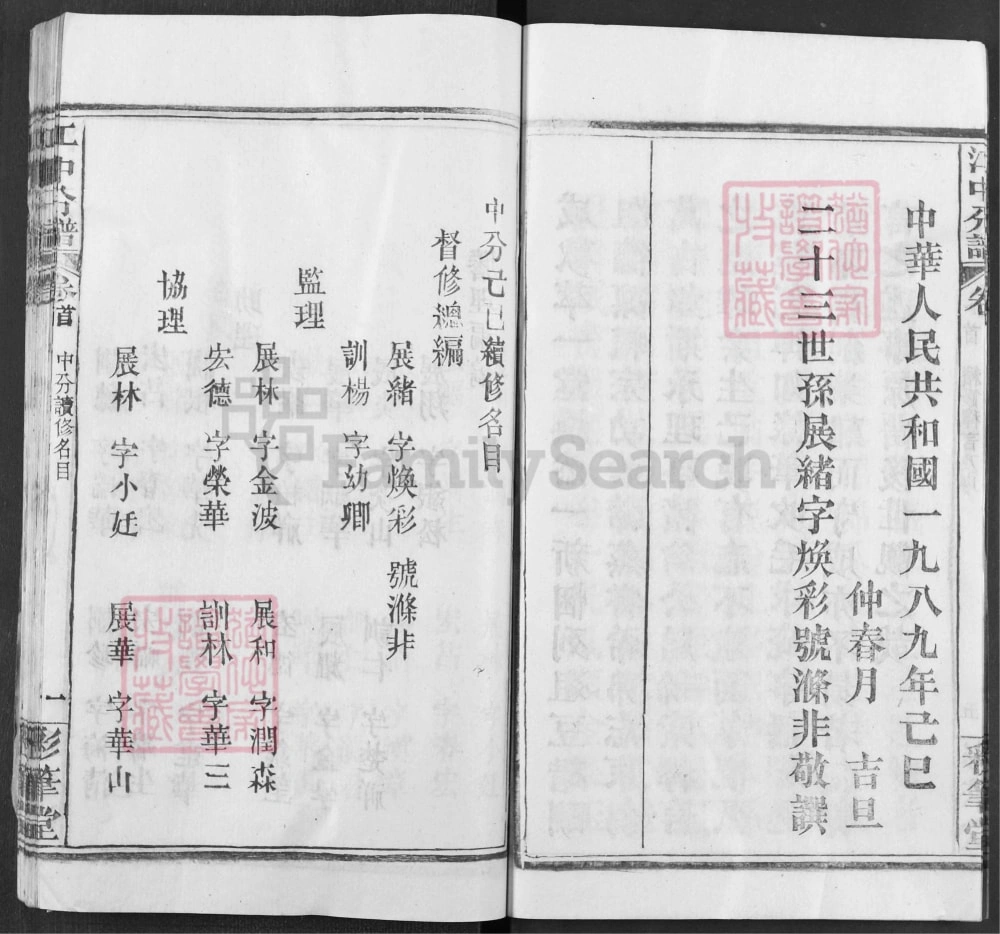 江中分譜
卷
首
中華人民共和國一九八九年己巳
仲春月 吉旦
二十三世孫展緒字煥彩號滌非敬譔
彩筆堂
中分己巳續修名目
督修總編
展緒 字煥彩 號滌非
訓楊 字幼卿
監理
展林 字金波 展和 字潤森
宏德 字榮華 訓林 字華三
協理
展林 字小廷 展華 字華山
江中分譜
卷首
中分讀修名目
一
彩筆堂
FamilySearch